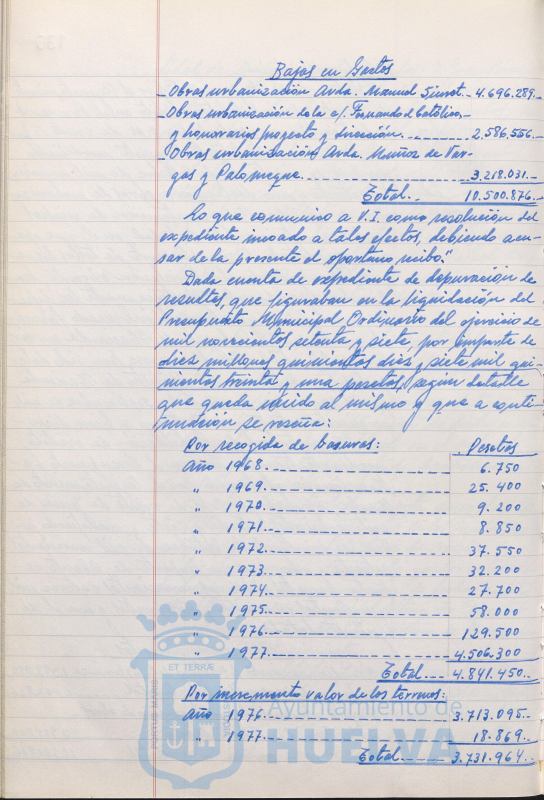 Bajas en Gastos
Obras urbanización Avda. Manuel Siurot.- 4.696.289.-
Obras urbanización de la c/. Fernando el Católico,-
y honorarios proyecto y dirección.- 2,586,556.-
Obras urbanización Avda. Muñoz de Var-
gas y Palomeque. 3.218.031.-
Total.- 10.500.876.-
Lo que comunico a V.I. como resolución del
expediente incoado a tales efectos, debiendo acu-
sar de la presente el oportuno recibo."
Dada cuenta de expediente de depuración de
resultas, que figuraban en la liquidación del
Presupuesto Municipal Ordinario del ejercicio de
mil novecientos setenta y siete, por importe de
diez millones quinientos diez y siete mil qui-
nientas treinta y una pesetas, según detalle
que queda unido al mismo y que a conti-
nuación se reseña:
Por recogida de basuras: Pesetas
Año 1968. 6.750
" 1969. 25.400
" 1970. 9.200
" 1971. 8.850
" 1972. 37.550
" 1973. 32.200
" 1974. 27.700
" 1975. 58.000
" 1976. 129.500
" 1977. 4.506.300
Total 4.841.450.-
Por incremento valor de los terrenos:
Año 1976. 3.713.095.-
" 1977. 18.869.-
Total. 3.731.964.-
ET TERRÆ
Ayuntamiento de
HUELVA